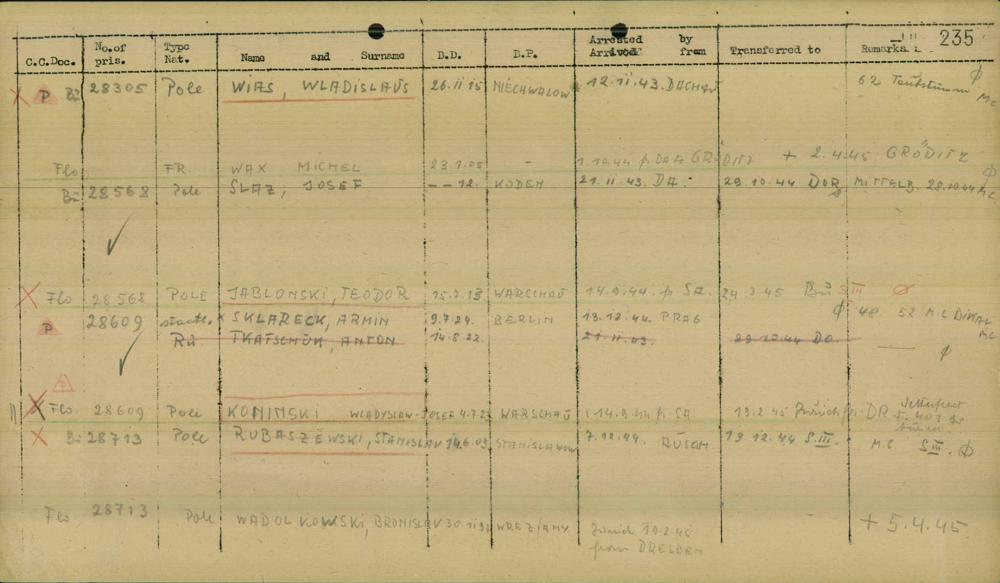 235
C.C.Doc. No. of pris. Type Nat. Name and Surname D.D. D.P. Arrested Arrived by from Transferred to Remarks
P Bü 28305 Pole WIAS, WLADISLAUS 26.11.15 NIECHWALOW 12.11.43. DACHAU 62 MC
Flo FR. WAX MICHEL 23.1.05 - 1.10.44 GRÖDITZ + 2.4.45 GRÖDITZ
Bü 28568 Pole SLAZ, JOSEF - - 12. KODEN 21.11.43. DA. 29.10.44 DORA MITTELB. 28.10.44 MC
Flo 28568 POLE JABLONSKI, TEODOR 15.2.13 WARSCHAU 14.9.44 p. SA. 24.3.45 Bü SIII
P 28609 staatl. x SKLARECK, ARMIN 9.7.24. BERLIN 13.12.44. PRAG 52 M.C.
RU TKATSCHUK, ANTON 14.8.22. 21.11.43. 29.10.44 DO. MC
P
Flo 28609 Pole KONINSKI WLADYSLAW-JOSEF 4.7.2 WARSCHAU 14.9.44 p. SA 19.2.45 Zürich p. DR
Bü 28713 Pole RUBASZEWSKI, STANISLAV 14.6.03 STANISLAWOW 7.12.44. AUSCH 13 12.44 S.III. M.C. SIII
Flo 28713 Pole WADOLKOWSKI, BRONISLEV 30 11 WREZIAMY Zürich 19.2.45 + 5.4.45.
from DRESDEN